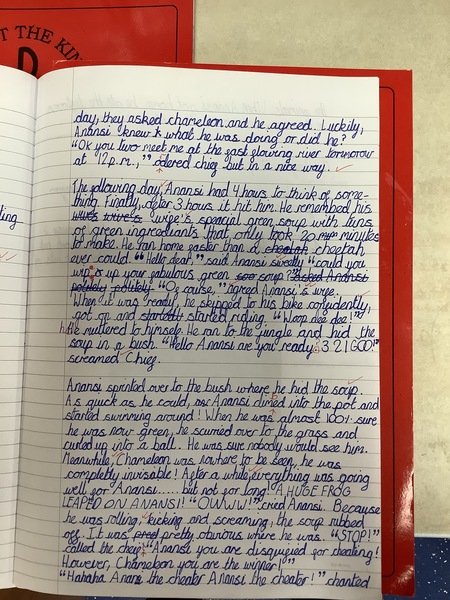 T THE KIN
D
ling
day, they asked chameleon and he agreed. Luckily,
Anansi knew what he was doing or did he?
"Ok you two meet me at the fast flowing river tommorow
at 12p.m.," odered chief but in a nice way.
The following day, Anansi had 4 hours to think of some-
thing. Finally, after 3 hours it hit him. He remembed his
wive's wrive's wife's spesial green soup with tens
of green ingredients that only took 20 minutes
to make. He ran home faster than a cheatah cheetah
ever could. "Hello dear," said Anansi sweatly "could you
wip up your fabulous green soo soup?" asked Anansi
politely politely "Of course," agreed Anansi's wife.
When it was ready, he skipped to his bike confidently,
got on and started started riding. "Woop dee dee!"
He muttered to himself. He ran to the jungle and hid the
soup in a bush. "Hello Anansi are you ready 3.2.1 GOO!"
screamed Chief.
Anansi sprinted over to the bush where he hid the soup.
As quick as he could, Anansi climed into the pot and
started swimming around! When he was almost 100% sure
he was now green, he scurried over to the grass and
curled up into a ball. He was sure nobody would see him.
Meanwhile, Chameleon was nowhere to be seen, he was
completly invisable! After a while, everything was going
well for Anansi...... but not for long! A HUGE FROG
LEAPED ON ANANSI! "OWWW!" cried Anansi. Because
he was rolling, kicking and screaming, the soup rubbed
off. It was pred pretty obvious where he was. "STOP!"
called the chief "Anansi you are disqualified for cheating!
However, Chameleon you are the winner!"
"Hahaha Anansi the cheater Anansi the cheater!" chanted